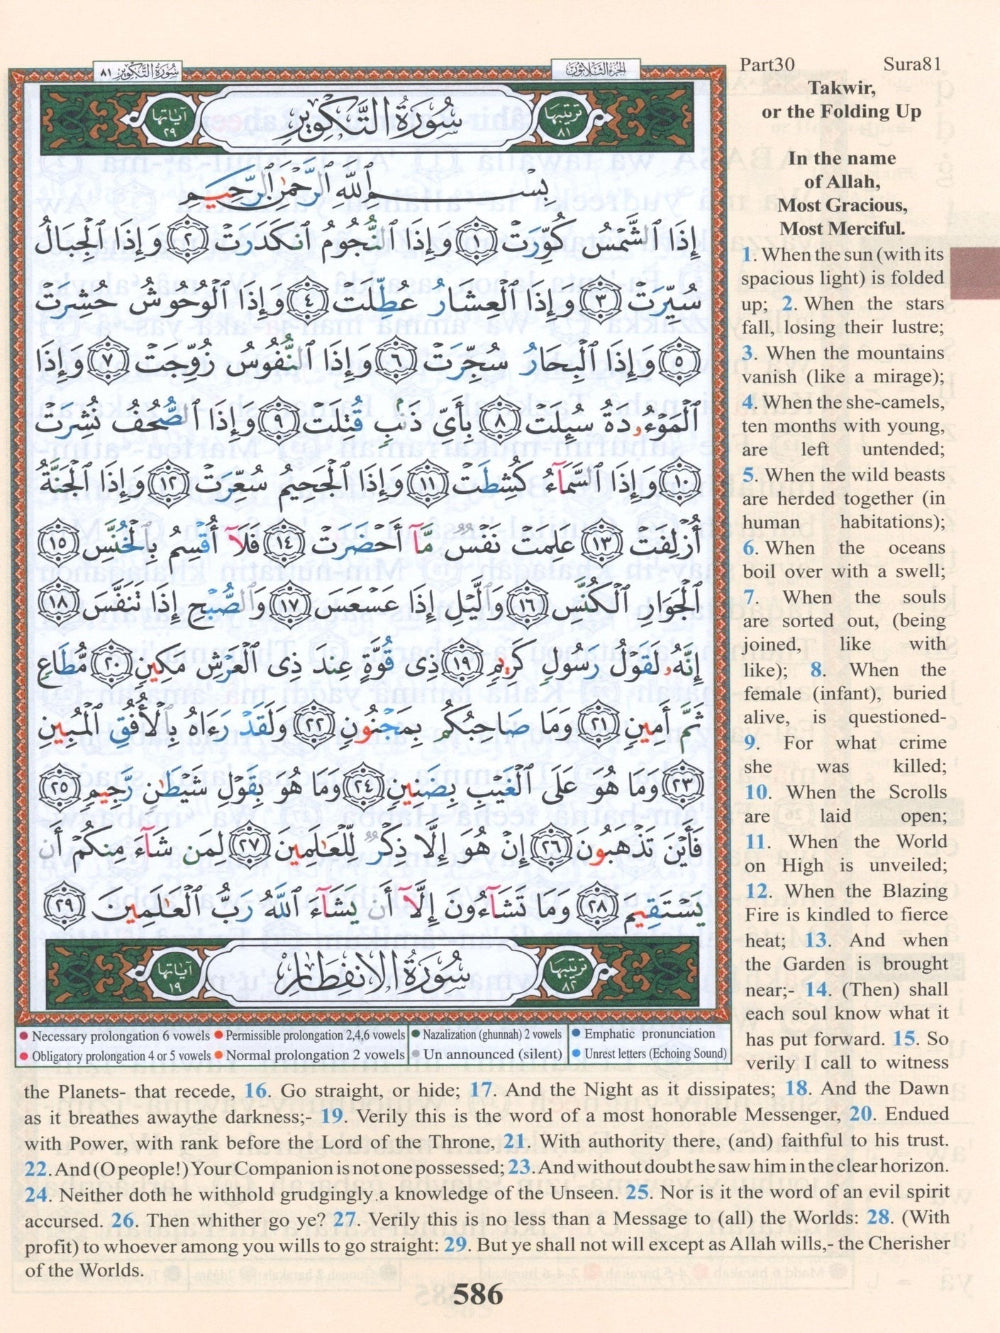 Part30 Sura81
سُورَةُ التَّكْوِيرِ ٨١
الجزء الثلاثون
آياتها ٢٩
سُورَةُ التَّكْوِيرِ
ترتيبها ٨١
بِسْمِ ٱللَّهِ ٱلرَّحْمَٰنِ ٱلرَّحِيمِ
إِذَا ٱلشَّمْسُ كُوِّرَتْ ١ وَإِذَا ٱلنُّجُومُ ٱنكَدَرَتْ ٢ وَإِذَا ٱلْجِبَالُ
سُيِّرَتْ ٣ وَإِذَا ٱلْعِشَارُ عُطِّلَتْ ٤ وَإِذَا ٱلْوُحُوشُ حُشِرَتْ
٥ وَإِذَا ٱلْبِحَارُ سُجِّرَتْ ٦ وَإِذَا ٱلنُّفُوسُ زُوِّجَتْ ٧ وَإِذَا
ٱلْمَوْءُۥدَةُ سُئِلَتْ ٨ بِأَىِّ ذَنۢبٍ قُتِلَتْ ٩ وَإِذَا ٱلصُّحُفُ نُشِرَتْ
١٠ وَإِذَا ٱلسَّمَآءُ كُشِطَتْ ١١ وَإِذَا ٱلْجَحِيمُ سُعِّرَتْ ١٢ وَإِذَا ٱلْجَنَّةُ
أُزْلِفَتْ ١٣ عَلِمَتْ نَفْسٌ مَّآ أَحْضَرَتْ ١٤ فَلَآ أُقْسِمُ بِٱلْخُنَّسِ ١٥
ٱلْجَوَارِ ٱلْكُنَّسِ ١٦ وَٱلَّيْلِ إِذَا عَسْعَسَ ١٧ وَٱلصُّبْحِ إِذَا تَنَفَّسَ ١٨
إِنَّهُۥ لَقَوْلُ رَسُولٍ كَرِيمٍ ١٩ ذِى قُوَّةٍ عِندَ ذِى ٱلْعَرْشِ مَكِينٍ ٢٠ مُّطَاعٍ
ثَمَّ أَمِينٍ ٢١ وَمَا صَاحِبُكُم بِمَجْنُونٍ ٢٢ وَلَقَدْ رَءَاهُ بِٱلْأُفُقِ ٱلْمُبِينِ
٢٣ وَمَا هُوَ عَلَى ٱلْغَيْبِ بِضَنِينٍ ٢٤ وَمَا هُوَ بِقَوْلِ شَيْطَٰنٍ رَّجِيمٍ ٢٥
فَأَيْنَ تَذْهَبُونَ ٢٦ إِنْ هُوَ إِلَّا ذِكْرٌ لِّلْعَٰلَمِينَ ٢٧ لِمَن شَآءَ مِنكُمْ أَن
يَسْتَقِيمَ ٢٨ وَمَا تَشَآءُونَ إِلَّآ أَن يَشَآءَ ٱللَّهُ رَبُّ ٱلْعَٰلَمِينَ ٢٩
آياتها ١٩
سُورَةُ الِانفِطَارِ
ترتيبها ٨٢
Necessary prolongation 6 vowels Permissible prolongation 2,4,6 vowels Nazalization (ghunnah) 2 vowels Emphatic pronunciation
Obligatory prolongation 4 or 5 vowels Normal prolongation 2 vowels Un announced (silent) Unrest letters (Echoing Sound)
Takwir,
or the Folding Up
In the name
of Allah,
Most Gracious,
Most Merciful.
1. When the sun (with its
spacious light) is folded
up; 2. When the stars
fall, losing their lustre;
3. When the mountains
vanish (like a mirage);
4. When the she-camels,
ten months with young,
are left untended;
5. When the wild beasts
are herded together (in
human habitations);
6. When the oceans
boil over with a swell;
7. When the souls
are sorted out, (being
joined, like with
like); 8. When the
female (infant), buried
alive, is questioned-
9. For what crime
she was killed;
10. When the Scrolls
are laid open;
11. When the World
on High is unveiled;
12. When the Blazing
Fire is kindled to fierce
heat; 13. And when
the Garden is brought
near;- 14. (Then) shall
each soul know what it
has put forward. 15. So
verily I call to witness
the Planets- that recede, 16. Go straight, or hide; 17. And the Night as it dissipates; 18. And the Dawn
as it breathes awaythe darkness;- 19. Verily this is the word of a most honorable Messenger, 20. Endued
with Power, with rank before the Lord of the Throne, 21. With authority there, (and) faithful to his trust.
22. And (O people!) Your Companion is not one possessed; 23. And without doubt he saw him in the clear horizon.
24. Neither doth he withhold grudgingly a knowledge of the Unseen. 25. Nor is it the word of an evil spirit
accursed. 26. Then whither go ye? 27. Verily this is no less than a Message to (all) the Worlds: 28. (With
profit) to whoever among you wills to go straight: 29. But ye shall not will except as Allah wills,- the Cherisher
of the Worlds.
586